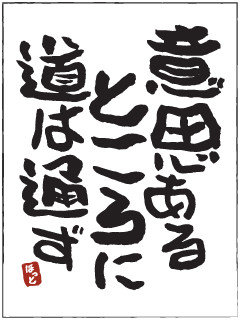 意思ある
ところに
道は通ず
ほっと